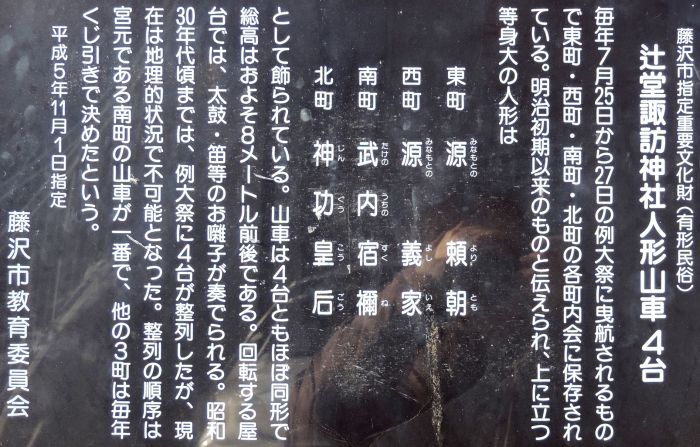 藤沢市指定重要文化財（有形民俗）
辻堂諏訪神社人形山車 4台
毎年7月25日から27日の例大祭に曳航されるもの
で東町・西町・南町・北町の各町内会に保存され
ている。明治初期以来のものと伝えられ、上に立つ
等身大の人形は
東町 源頼朝
みなもとの より とも
西町 源義家
みなもとの よし いえ
南町 武内宿禰
たけの うちの すく ね
北町 神功皇后
じん ぐう こう ごう
として飾られている。山車は4台ともほぼ同形で
総高はおよそ8メートル前後である。回転する屋
台では、太鼓・笛等のお囃子が奏でられる。昭和
30年代頃までは、例大祭に4台が整列したが、現
在は地理的状況で不可能となった。整列の順序は
宮元である南町の山車が一番で、他の3町は毎年
くじ引きで決めたという。
平成5年11月1日指定
藤沢市教育委員会